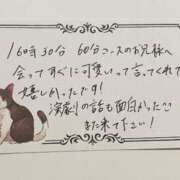 16時30分 60分コースのお兄様へ
会ってすぐに可愛いって言ってくれて
嬉しかったです!
演劇の話も面白かった
また来て下さい!